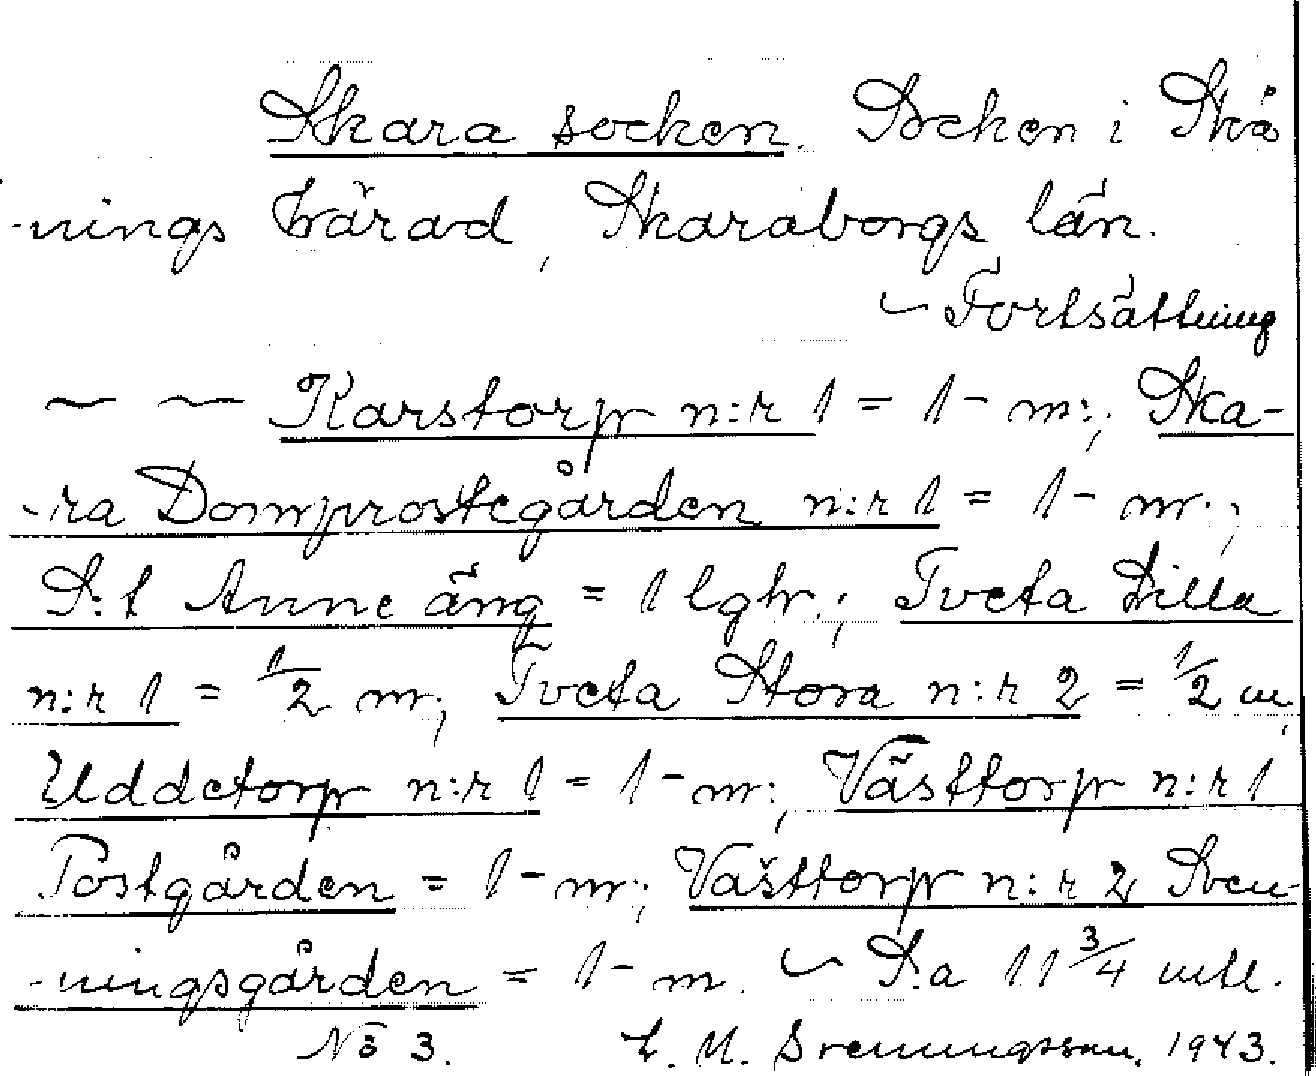 Skara socken. Socken i Skå
-nings härad, Skaraborgs län.
~ Fortsättning
~ ~ Karstorp n:r 1 = 1 - m:; Ska-
-ra Domprostegården n:r 1 = 1 - m.;
S:t Anne äng = 1 lght.; Tveta Lilla
n:r 1 = 1/2 m; Tveta Stora n:r 2 = 1/2 m,
Uddetorp n:r 1 = 1 - m:; Västtorp n:r 1
Postgården = 1 - m; Västtorp n:r 2 Sven-
-ningsgården = 1 - m. ~ S:a 11 3/4 mtl.
No 3. E. M. Svenningsson. 1943.